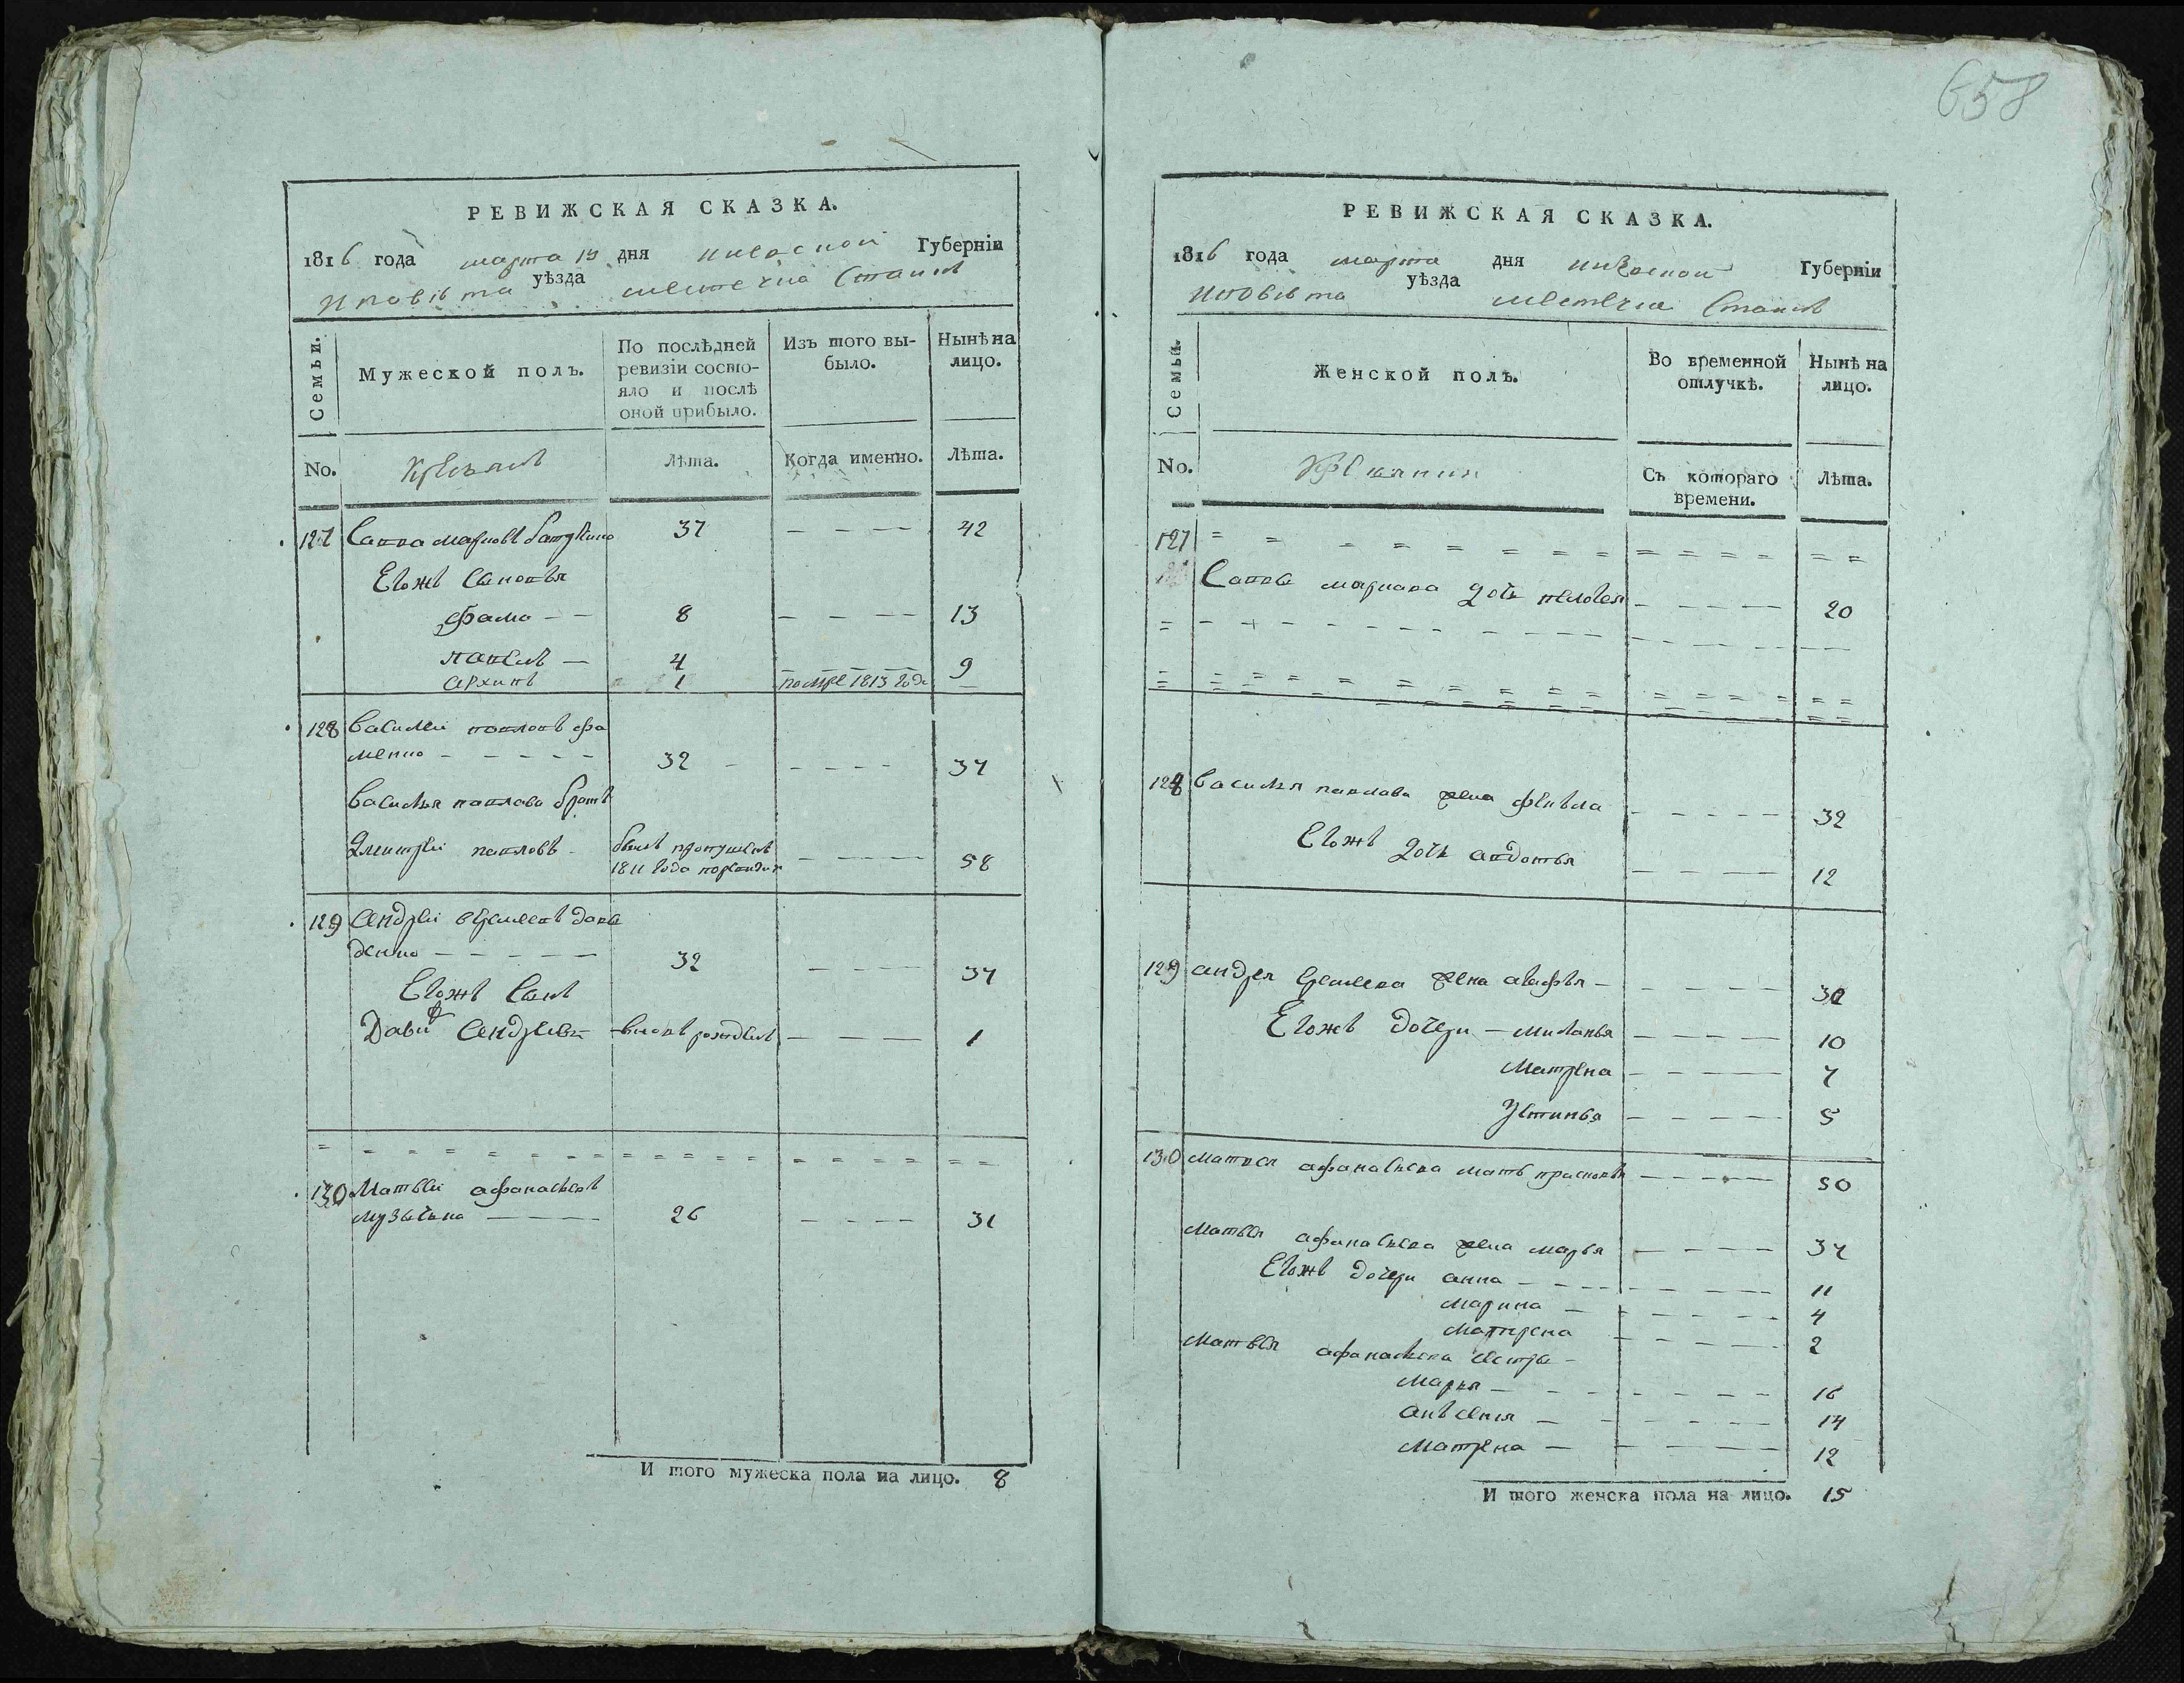 658
РЕВИЖСКАЯ СКАЗКА.
1816 года марта 13 дня киевской Губерніи
и повѣта уѣзда местечка Ставищ
Семьи.
Мужеской полъ.
По послѣдней ревизіи состо-
яло и послѣ оной прибыло.
Изъ того вы-
было.
Нынѣ на лицо.
No.
Лѣта.
Когда именно.
Лѣта.
127 Савва марковъ 37 — — — 42
Егожъ Сыновья
фама — — 8 — — — 13
павелъ — 4 — — — 9
архипъ 1 помре 1813 года —
128 василей павловъ фо
менко — — — — — 32 — — — — 37
василья павлова братъ
Дмитрей павловъ - былъ пропущенъ
1811 года по ревизіи — — — — 58
129 андрей еремеевъ давы
денко — — — — — 32 — — — 37
Егожъ Сынъ
Давидъ андреевъ вновь рожденъ — — — 1
130 Матвей афанасьевъ
музыченко 26 — — — — 31
И того мужеска пола на лицо. 8
РЕВИЖСКАЯ СКАЗКА.
1816 года марта дня киевской Губерніи
и повѣта уѣзда местечка Ставищ
Семьи.
Женской полъ.
Во временной отлучкѣ.
Нынѣ на лицо.
No.
Съ котораго времени.
Лѣта.
127
Савы маркова дочь пелагея — — — — 20
128 василья павлова жена фекъла — — — — 32
Егожъ дочь авдотья — — — — 12
129 андрея еремеева жена агафья — — — — — 32
Егожъ дочери — миланья — — — — 10
Матрена — — — — 7
Устинья — — — — 5
130 матвея афанасьева мать прасковья — — — — — 50
Матвея афанасьева жена марья — — — — 37
Егожъ дочери анна — — — — 11
марина — — — — 4
матрена — — — — 2
Матвея афанасьева сестры —
марья — — — — 16
анъсенья — — — — 14
матрена — — — — 12
И того женска пола на лицо. 15